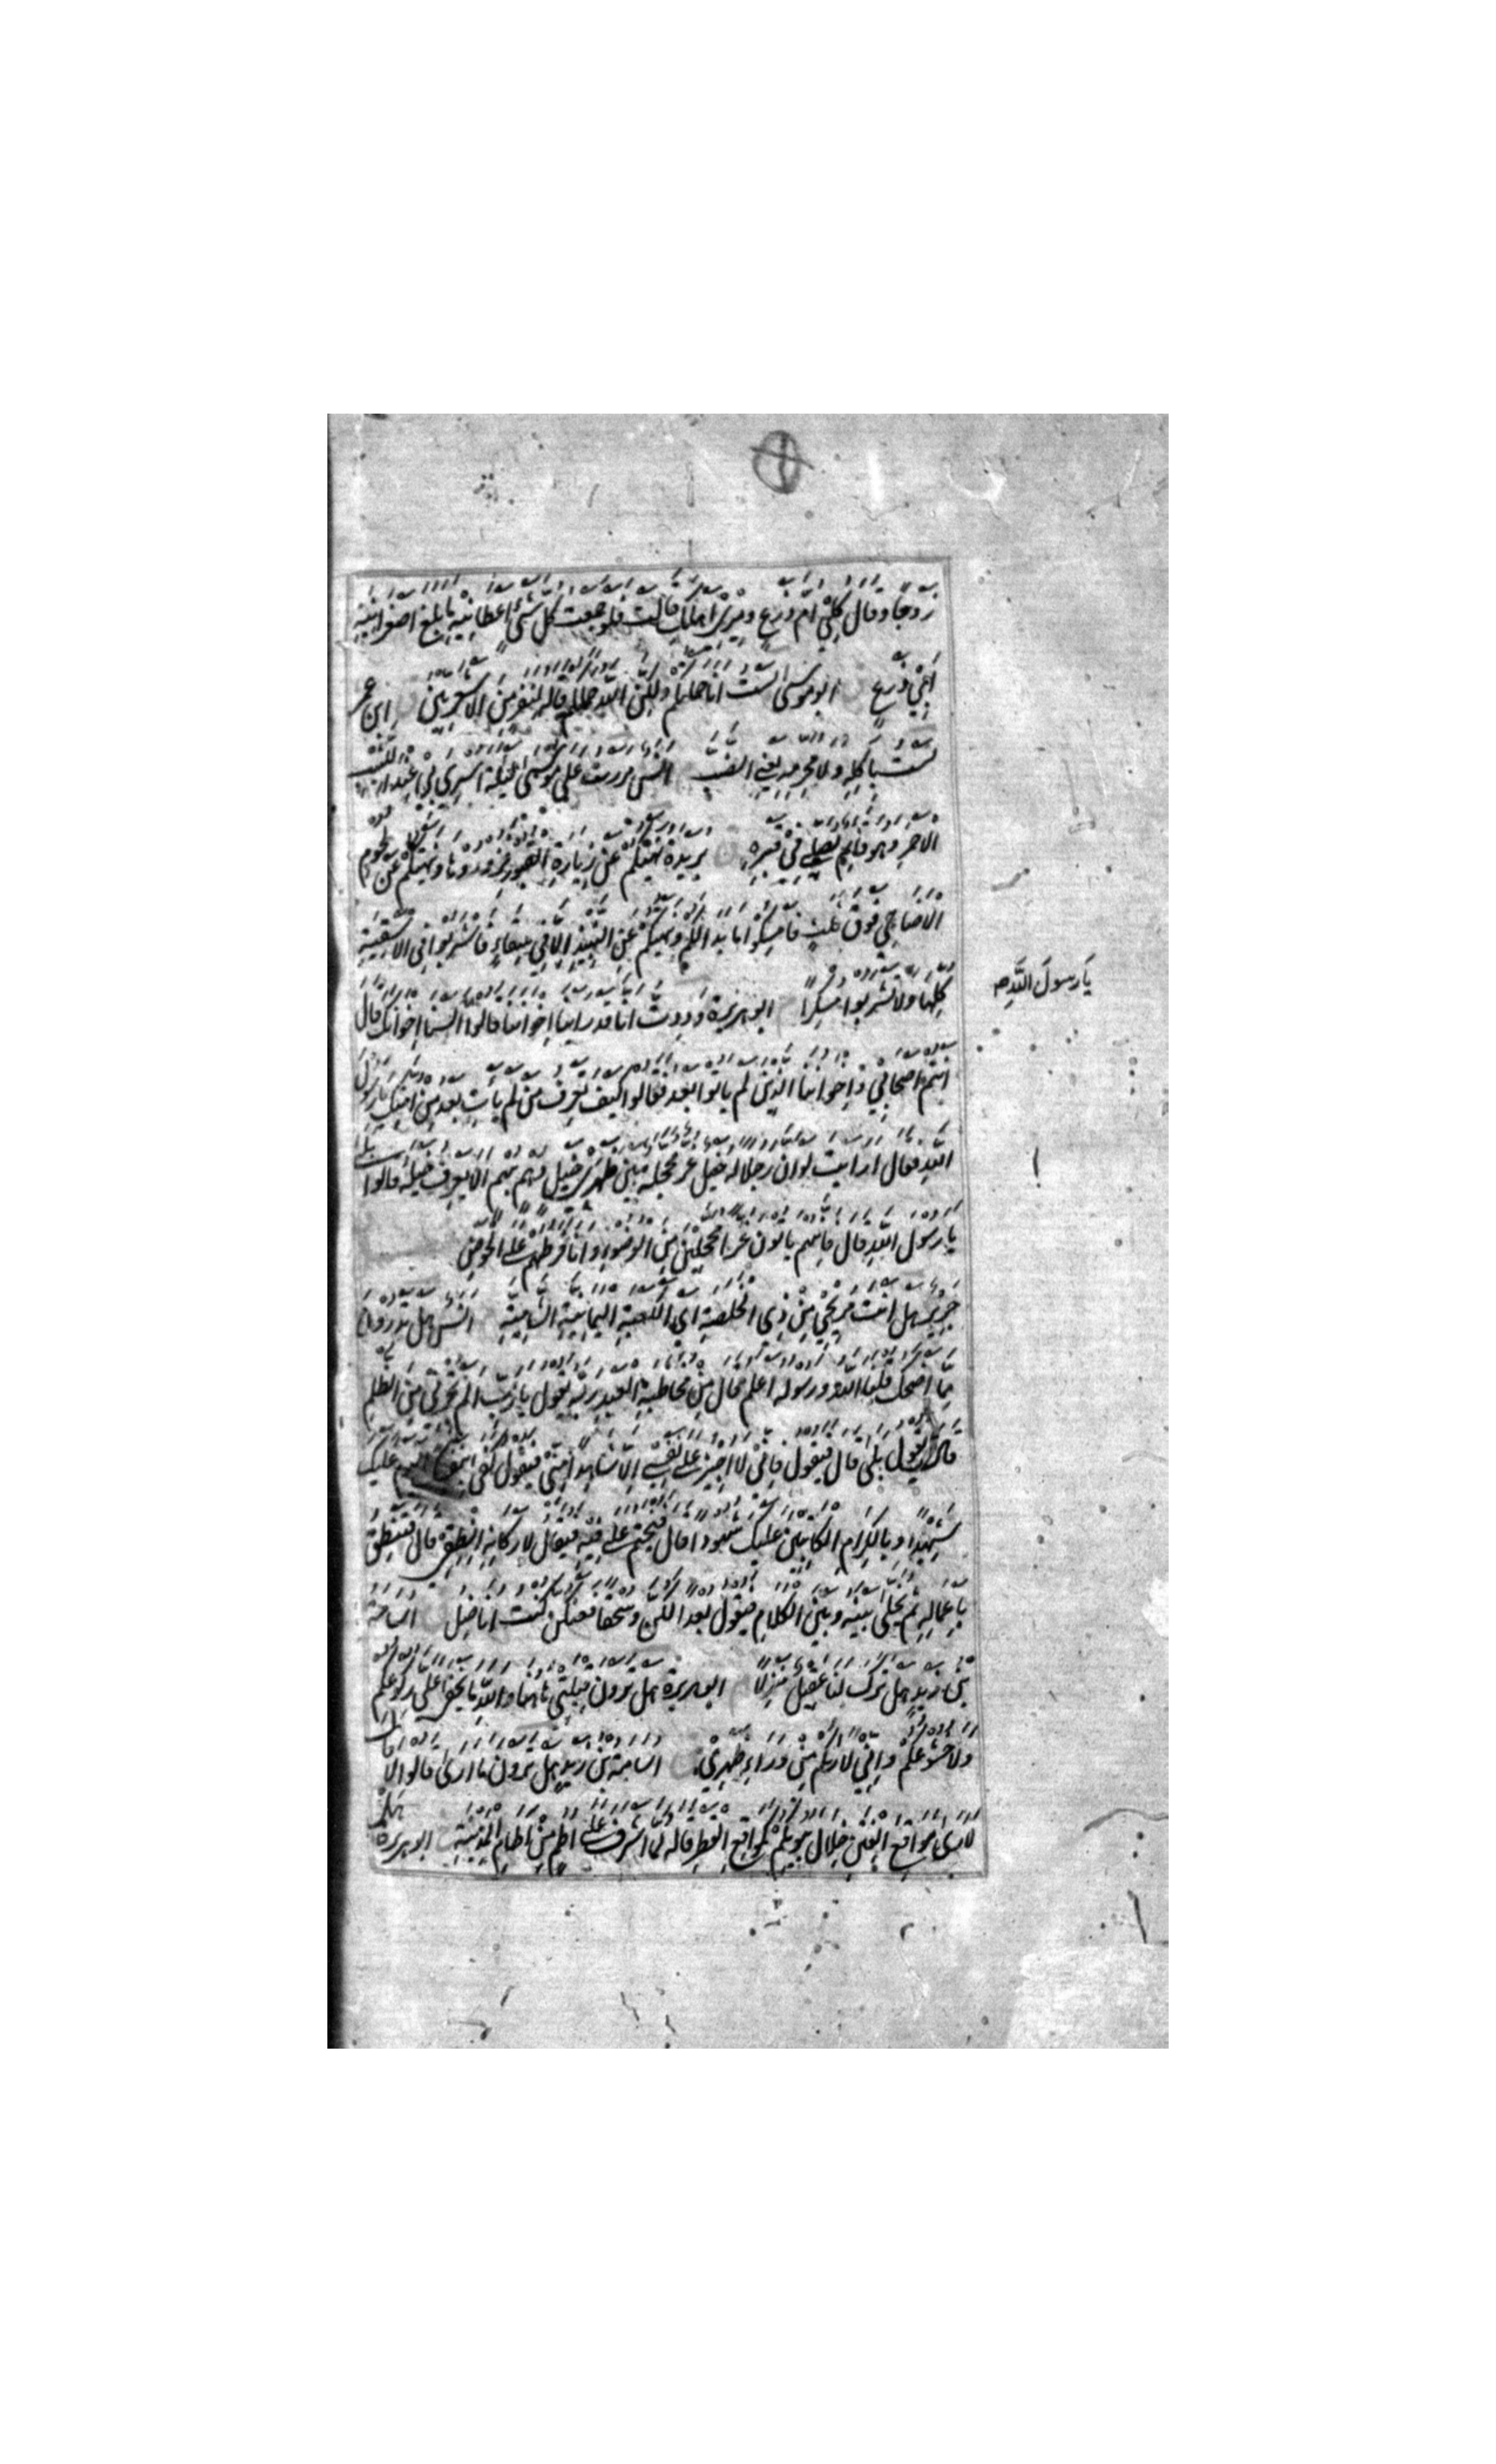 زوجا وقال كلي ام زرع وميري اهلك قالت فلو جمعت كل شئ اعطانيه ما بلغ اصغر انية
ابي زرع ابو موسى لست انا حملتكم ولكن الله حملكم قاله لنفر من الاشعريين ابن عمر
لست باكله ولا محرمه يعني الضب انس مررت على موسى ليلة اسري بي عند الكثيب
الاحمر وهو قائم يصلي في قبره بريدة نهيتكم عن زيارة القبور فزوروها ونهيتكم عن لحوم
الاضاحي فوق ثلث فامسكوا ما بدا لكم ونهيتكم عن النبيذ الا في سقاء فاشربوا في الاسقية
كلها ولا تشربوا مسكرا ابو هريرة وددت انا قد راينا اخواننا قالوا السنا اخوانك قال
يا رسول الله
انتم اصحابي واخواننا الذين لم ياتوا بعد فقالوا كيف تعرف من لم يات بعد من امتك يا رسول
الله فقال ارايت لو ان رجلا له خيل غر محجلة بين ظهري خيل دهم بهم الا يعرف خيله قالوا بلى
يا رسول الله قال فانهم ياتون غرا محجلين من الوضوء وانا فرطهم على الحوض
جرير هل انت مريحي من ذي الخلصة اي الكعبة اليمانية الشامية انس هل تدرون
مما اضحك قلنا الله ورسوله اعلم قال من مخاطبة العبد ربه يقول يا رب الم تجرني من الظلم
قال يقول بلى قال فيقول فاني لا اجيز على نفسي الا شاهدا مني فيقول كفى بنفسك اليوم عليك
شهيدا وبالكرام الكاتبين عليك شهودا قال فيختم على فيه فيقال لاركانه انطقي قال فتنطق
باعماله ثم يخلى بينه وبين الكلام فيقول بعدا لكن وسحقا فعنكن كنت اناضل اسامة
بن زيد هل ترك لنا عقيل منزلا ابو هريرة هل ترون قبلتي هاهنا والله ما يخفى علي ركوعكم
ولا خشوعكم واني لاراكم من وراء ظهري اسامة بن زيد هل ترون ما ارى قالوا لا قال
لارى مواقع الفتن خلال بيوتكم كمواقع القطر قاله لما اشرف على اطم من اطام المدينة ابو هريرة هلك